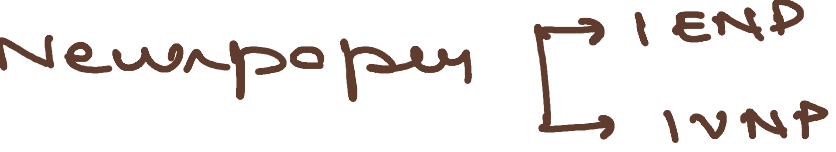 Newspaper → 1 END
→ 1 VNP